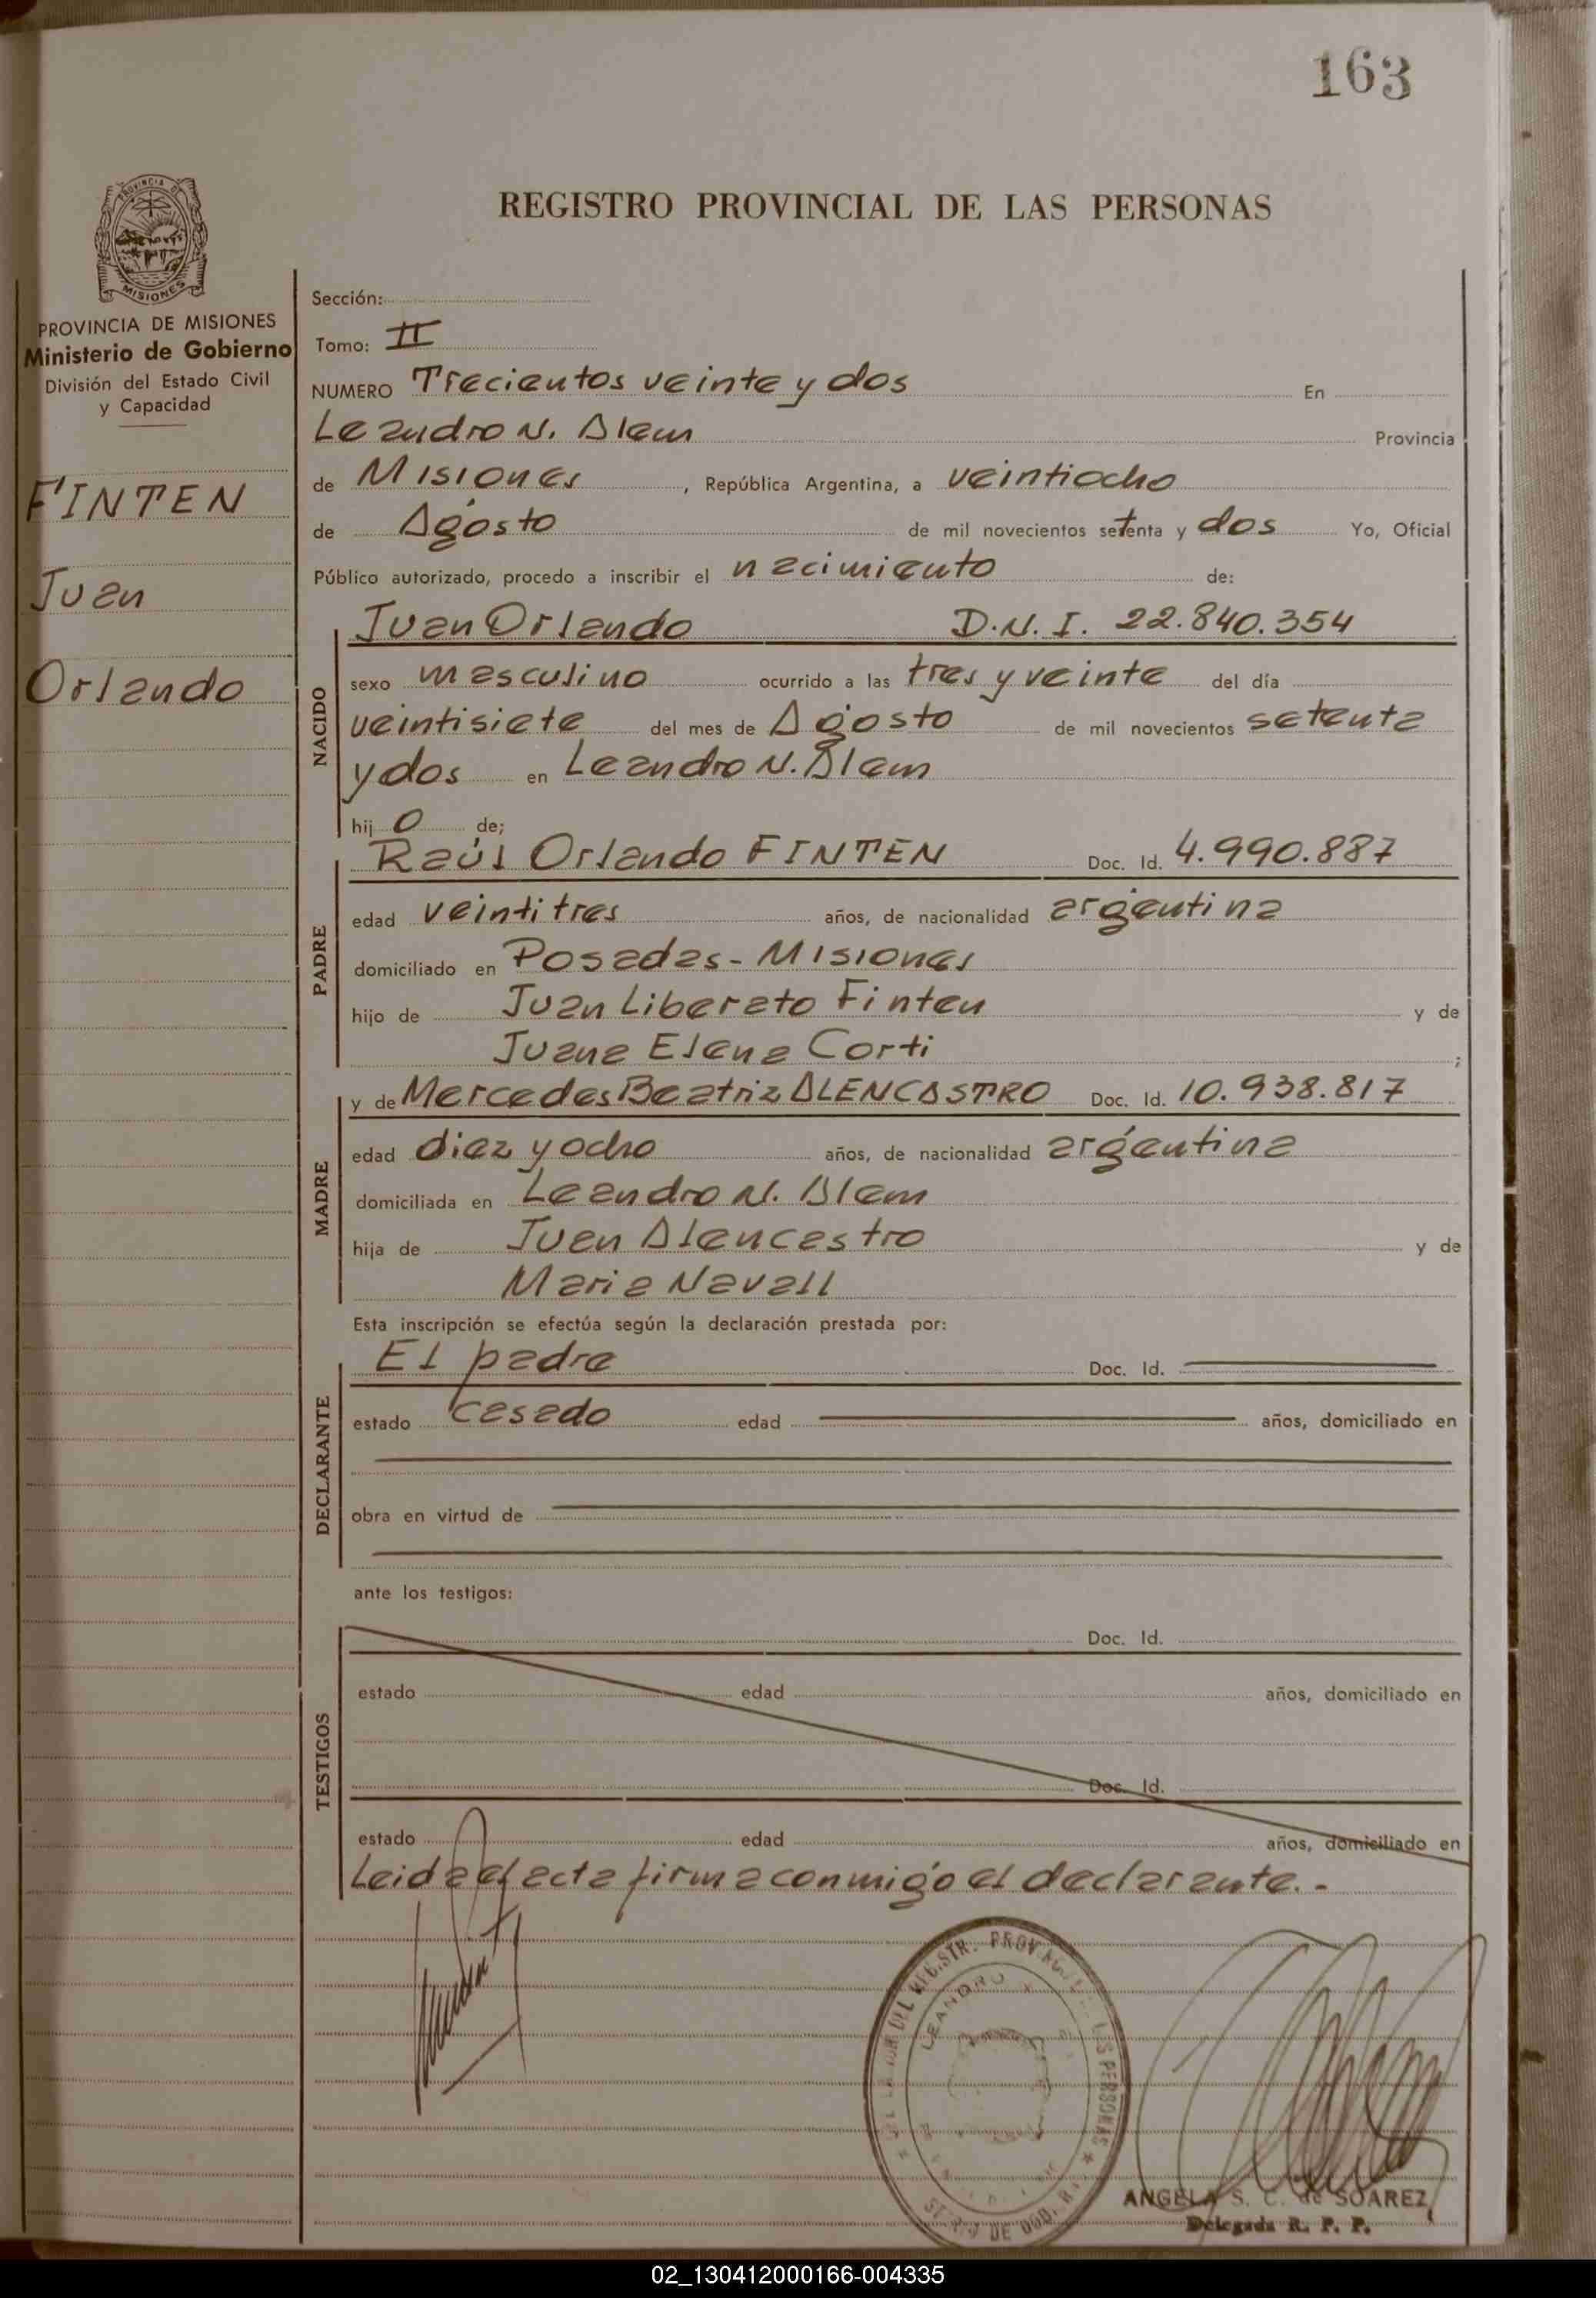 163
REGISTRO PROVINCIAL DE LAS PERSONAS
PROVINCIA DE
MISIONES
PROVINCIA DE MISIONES
Ministerio de Gobierno
División del Estado Civil
y Capacidad
FINTEN
Juan
Orlando
Sección:
Tomo: II
NUMERO Trecientos veinte y dos En
Leandro N. Alem Provincia
de Misiones, República Argentina, a veintiocho
de Agosto de mil novecientos setenta y dos Yo, Oficial
Público autorizado, procedo a inscribir el nacimiento de:
NACIDO
Juan Orlando D.N.I. 22.840.354
sexo masculino ocurrido a las tres y veinte del día
veintisiete del mes de Agosto de mil novecientos setenta
y dos en Leandro N. Alem
hij o de;
PADRE
Raúl Orlando FINTEN Doc. Id. 4.990.887
edad veintitres años, de nacionalidad argentina
domiciliado en Posadas - Misiones
hijo de Juan Liberato Finten y de
Juana Elena Corti ;
MADRE
y de Mercedes Beatriz ALENCASTRO Doc. Id. 10.938.817
edad diez y ocho años, de nacionalidad argentina
domiciliada en Leandro N. Alem
hija de Juan Alencastro y de
Maria Navall
Esta inscripción se efectúa según la declaración prestada por:
DECLARANTE
El padre Doc. Id.
estado casado edad años, domiciliado en
obra en virtud de
ante los testigos:
TESTIGOS
Doc. Id.
estado edad años, domiciliado en
Doc. Id.
estado edad años, domiciliado en
Leida el acta firma conmigo el declarante.-
LEANDRO
PERSONAS
ANGELA S. C. de SOAREZ
Delegada R. P. P.
02_130412000166-004335